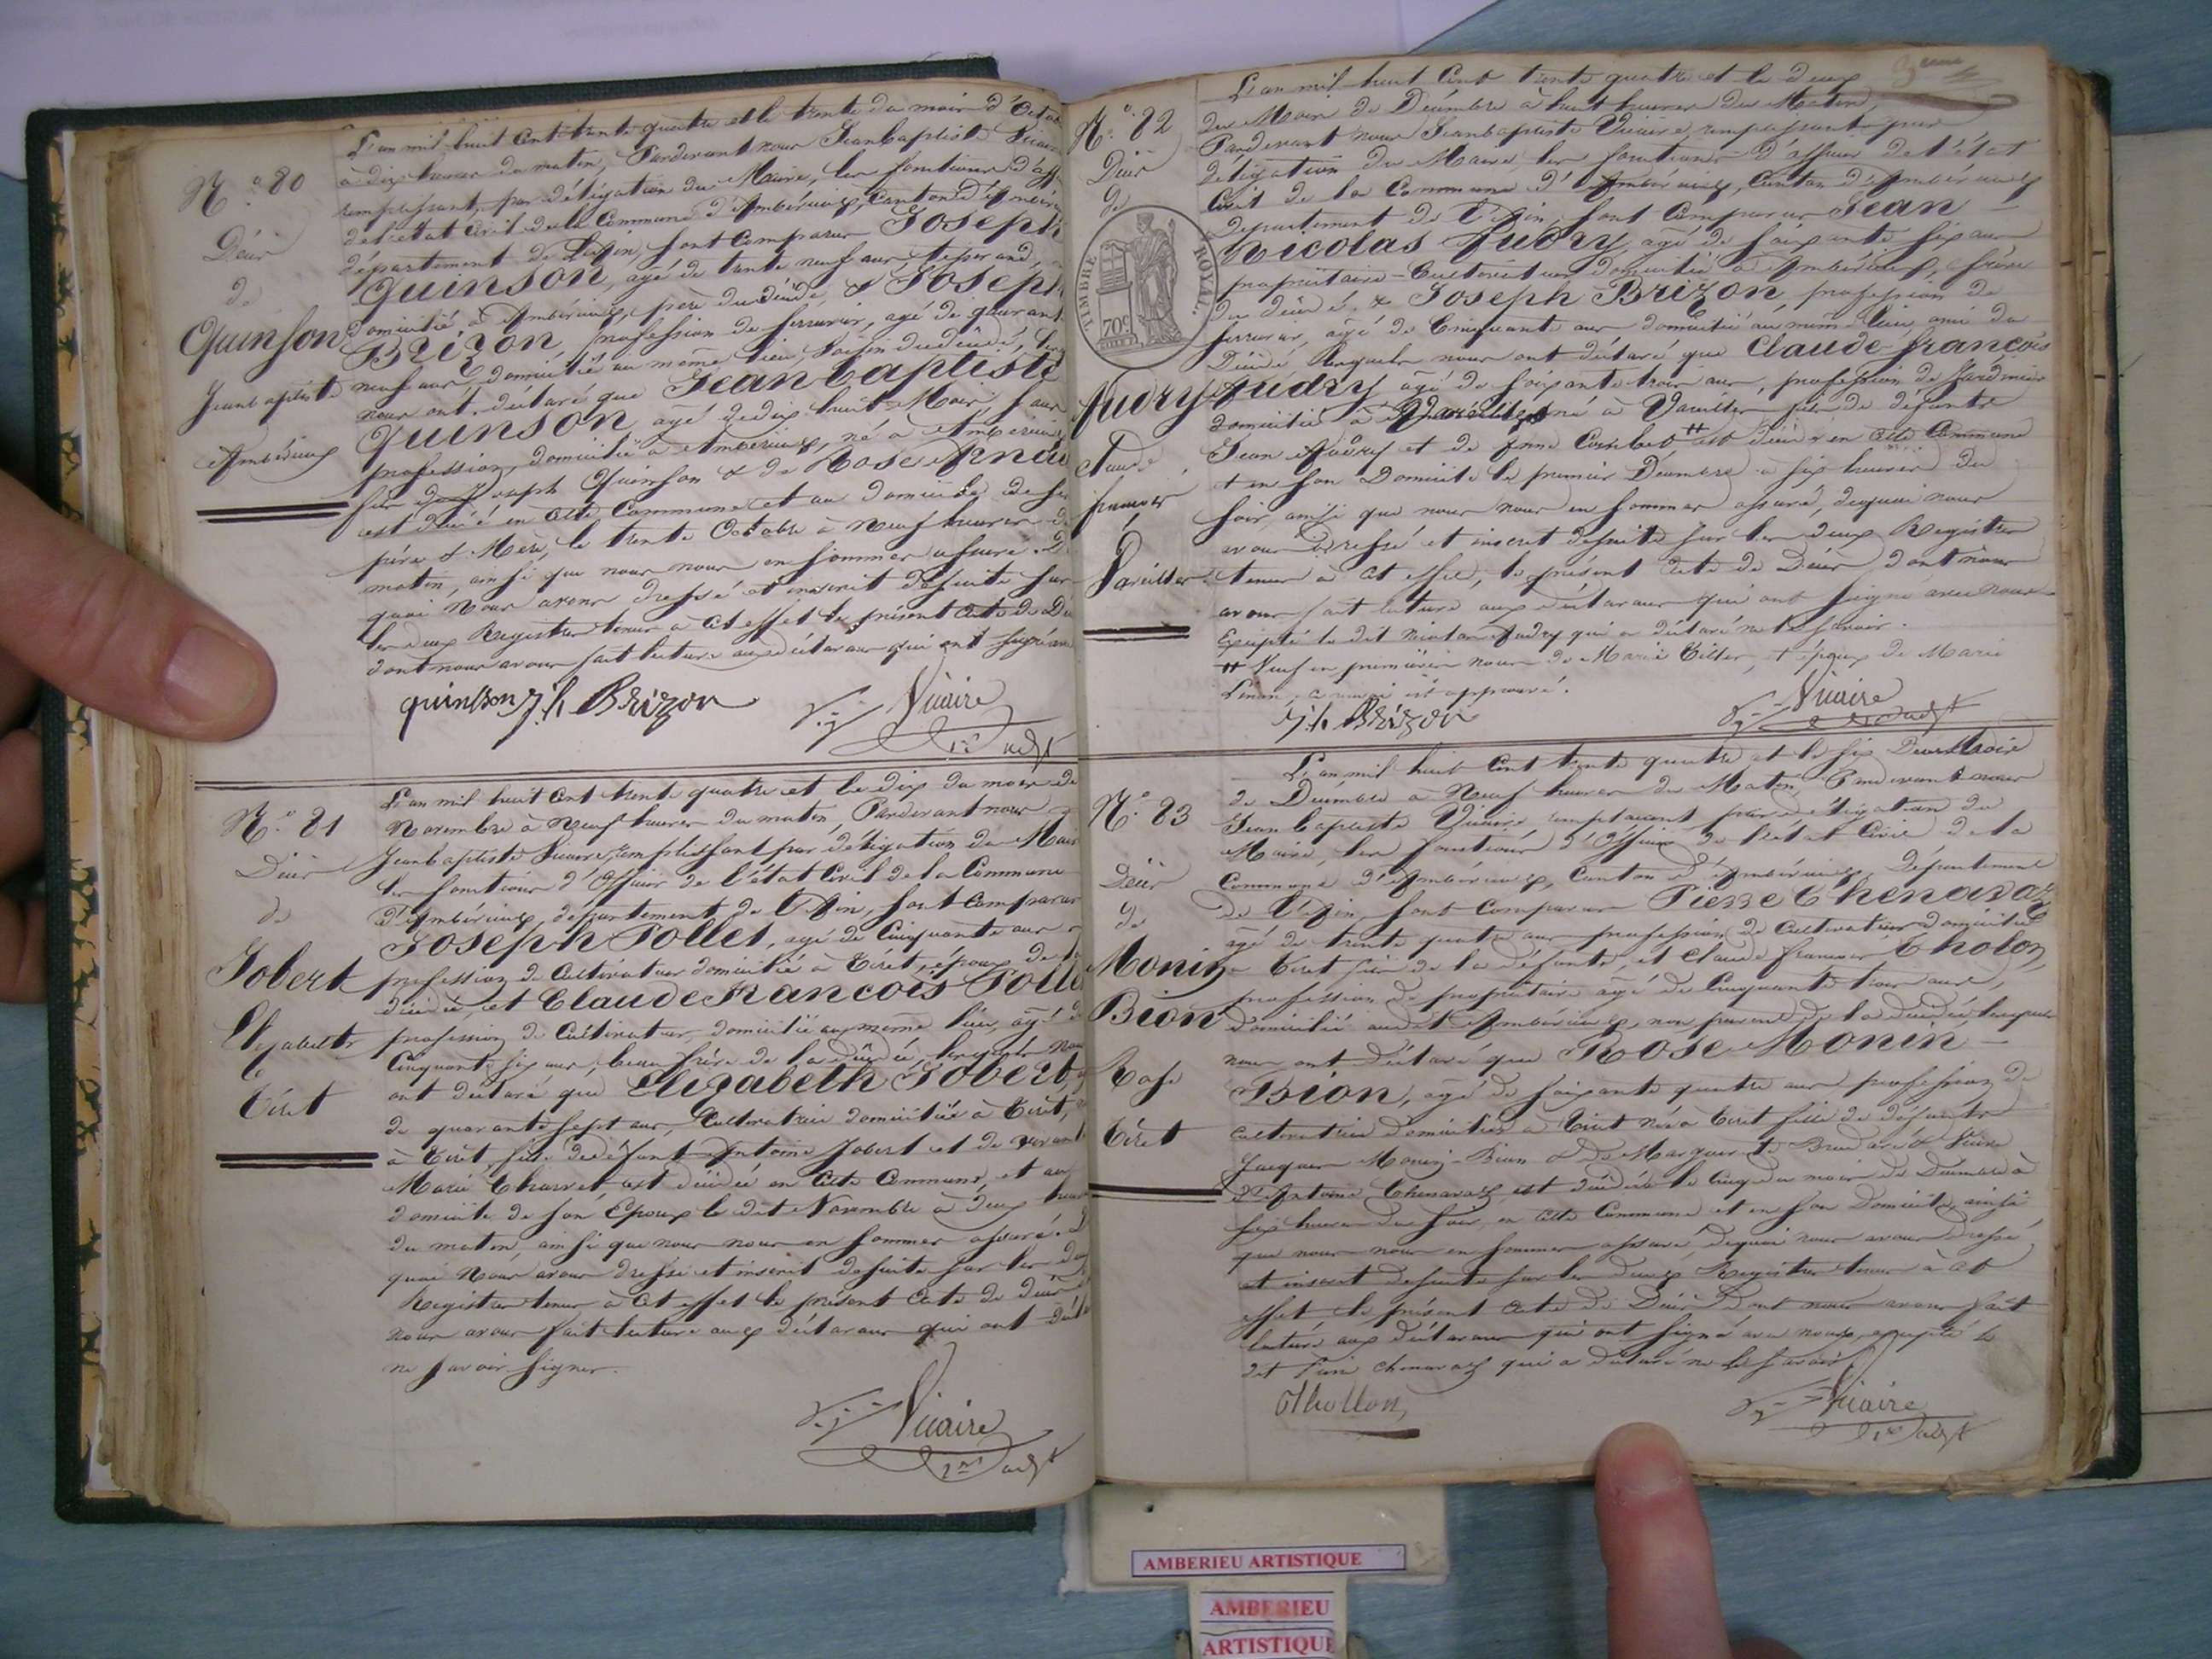 N.° 80
Décès
de
Quinson
Jeanbaptiste
Ambérieux
L'an mil huit cent trente quatre et le trente du mois d'Octob
à dix heures du matin, Pardevant nous Jeanbaptiste Vicaire
remplissant, par délégation du Maire, les fonctions d'off
de l'état Civil de la Commune d'Ambérieux, Canton d'Ambérieux
département de L'Ain, sont comparus Joseph
Quinson, agé de trente neuf ans, tisserand,
domicilié à Ambérieux, père du décédé, & Joseph
Brizon, profession de serrurier, agé de quarant
neuf ans, domicilié au même lieu, voisin du décédé, les
nous ont déclaré que Jeanbaptiste
Quinson, agé de dix huit Mois, sans
profession, domicilié à Ambérieux, né à Ambérieux
fils de Joseph Quinson & de Rose
est décédé en cette Commune et au domicile de ses
père & Mère, le trente Octobre à Neuf heures d
matin, ainsi que nous nous en sommes assuré. D
quoi Nous avons dressé et inscrit desuite sur
les deux Registres tenus à cet effet le présent acte de Dé
dont nous avons fait lecture aux déclarans qui ont signé avec
quinson J.h Brizon
Vicaire
1er adjt
N.° 81
Décès
de
Jobert
Elizabeth
Tiret
L'an mil huit cent trente quatre et le dix du mois de
Novembre à Neuf heures du matin, Pardevant nous
Jeanbaptiste Vicaire, remplissant par délégation du Maire
les fonctions d'officier de l'état Civil de la Commune
d'Ambérieux, département de l'Ain, sont comparus
Joseph Pollet, agé de Cinquante ans
profession de Cultivateur domicilié à Tiret, époux de la
décédée, et Claude François Polle
profession de Cultivateur, domicilié au même lieu, agé d
Cinquante six ans, beau frère de la décédée, lesquels nous
ont déclaré que Elizabeth Jobert, a
de quarante sept ans, Cultivatrice domiciliée à Tiret,
à Tiret, fille de défunt Antoine Jobert et de vivante
Marie Charvet, est décédée en cette Commune, et au
domicile de son Epoux le dit Novembre à deux heures
du matin, ainsi que nous nous en sommes assuré. D
quoi Nous avons dressé et inscrit desuite sur les deux
Registres tenus à cet effet le présent acte de décès
nous avons fait lecture aux déclarans qui ont décla
ne savoir signer.
Vicaire
1er adjt
N.° 82
Décès
de
TIMBRE ROYAL.
70c
Audry
Claude
françois
Vareilles
L'an mil huit Cent trente quatre et le deux
du Mois de Décembre à huit heures du Matin,
Pardevant nous Jeanbaptiste Vicaire, remplissant par
délégation du Maire, les fonctions d'officier de l'état
Civil de la Commune d'Ambérieux, Canton d'Ambérieux
département de l'Ain, sont comparus Jean
Nicolas Audry, agé de soixante six ans
propriétaire-Cultivateur domicilié à Ambérieux, frère
du décédé, & Joseph Brizon, profession de
serrurier, agé de Cinquante ans domicilié au même lieu, ami du
Décédé lesquels nous ont déclaré que Claude-françois
Audry âgé de soixante trois ans, profession de Jardinier
domicilié à Vareilles né à Vareilles fils de défunts
Jean Audry et de Anne Combet # est décédé en cette Commune
et en son Domicile le premier Décembre à six heures du
soir, ainsi que nous nous en sommes assuré, dequoi nous
avons Dressé et inscrit desuite sur les deux Registres
tenus à cet effet, le présent acte de Décès, dont nous
avons fait lecture aux déclarans qui ont signé avec nous
Excepté le dit Nicolas Audry qui a déclaré ne le savoir.
# Veuf en premières noces de Marie Tiller, et époux de Marie
approuvé.
J.h Brizon
Vicaire
adjt
N.° 83
Décès
de
Monin
Bion
Rose
Tiret
L'an mil huit Cent trente quatre et le six
de Décembre à Neuf heures du Matin, Pardevant nous
Jean baptiste Vicaire remplissant par délégation du
Maire, les fonctions d'Officier de l'état Civil de la
Commune d'Ambérieux, Canton d'Ambérieux, Département
de l'Ain, sont comparus Pierre Chenavaz
agé de trente quatre ans profession de Cultivateur domicilié
Tiret fils de la défunte, et Claude françois Tholon,
profession de propriétaire agé de Cinquante trois ans,
domicilié audit Ambérieux, non parent de la décédée, lesquels
nous ont déclaré que Rose Monin
Bion, agé de soixante quatre ans profession de
cultivatrice domiciliée à Tiret née à Tiret fille de défunts
Jacques Monin-Bion & de Marguerite & Veuve
d'Antoine Chenavaz est décédée le Cinq du mois de Décembre à
six heures du soir, en cette Commune et en son Domicile, ainsi
que nous nous en sommes assuré, dequoi nous avons dressé
et inscrit desuite sur les deux Registres tenus à cet
effet le présent acte de Décès Dont nous avons fait
lecture aux déclarans qui ont signé avec nous, excepté le
dit Pierre Chenavaz qui a déclaré ne le savoir
Thollon
Vicaire
1er adjt
AMBERIEU ARTISTIQUE
AMBERIEU
ARTISTIQUE